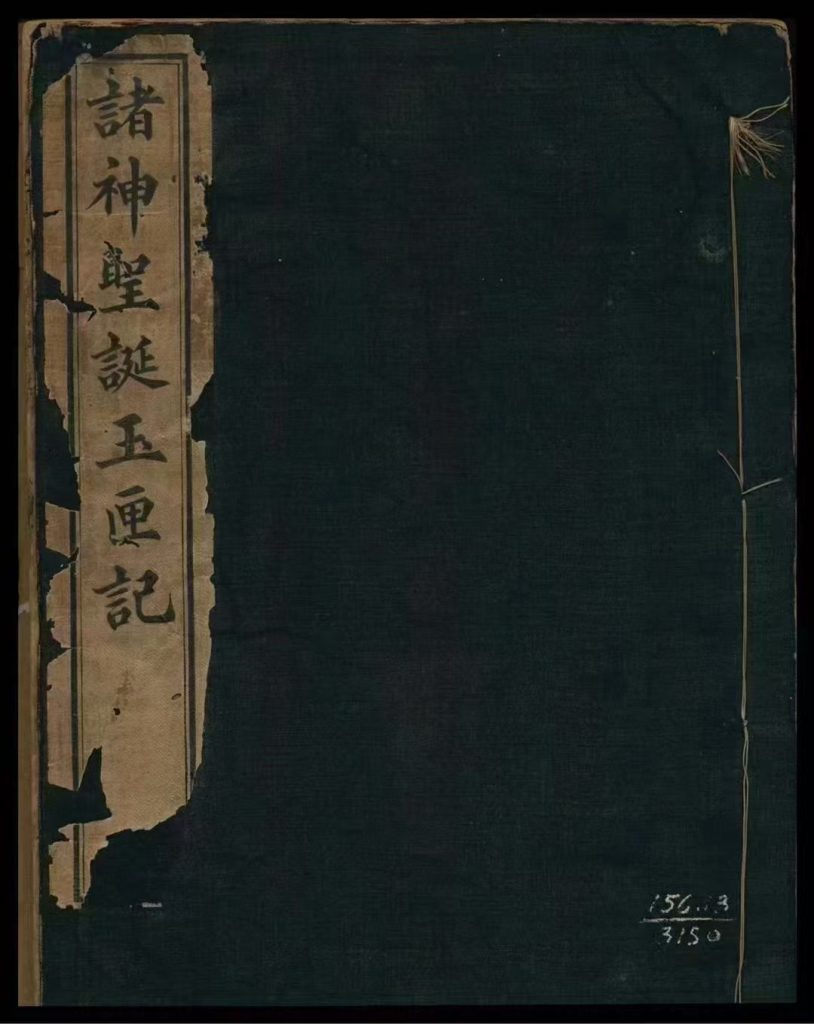 諸神聖誕玉匣記
3150